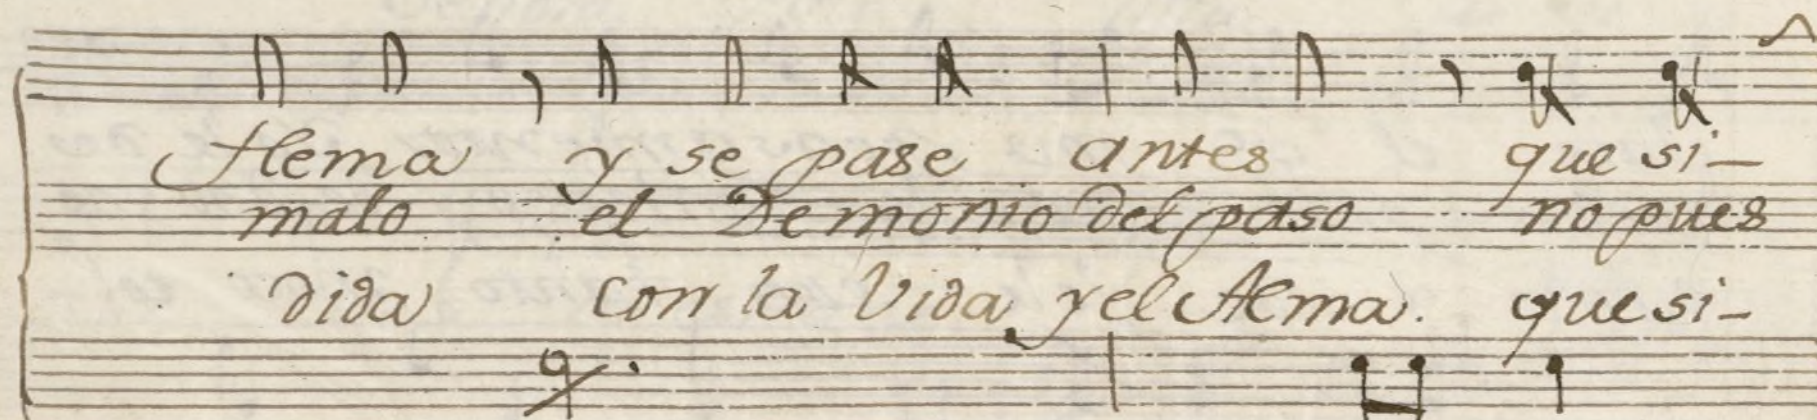 flema y se pase antes que si-
malo el Demonio del paso no pues
dida con la Vida y el Alma. que si-